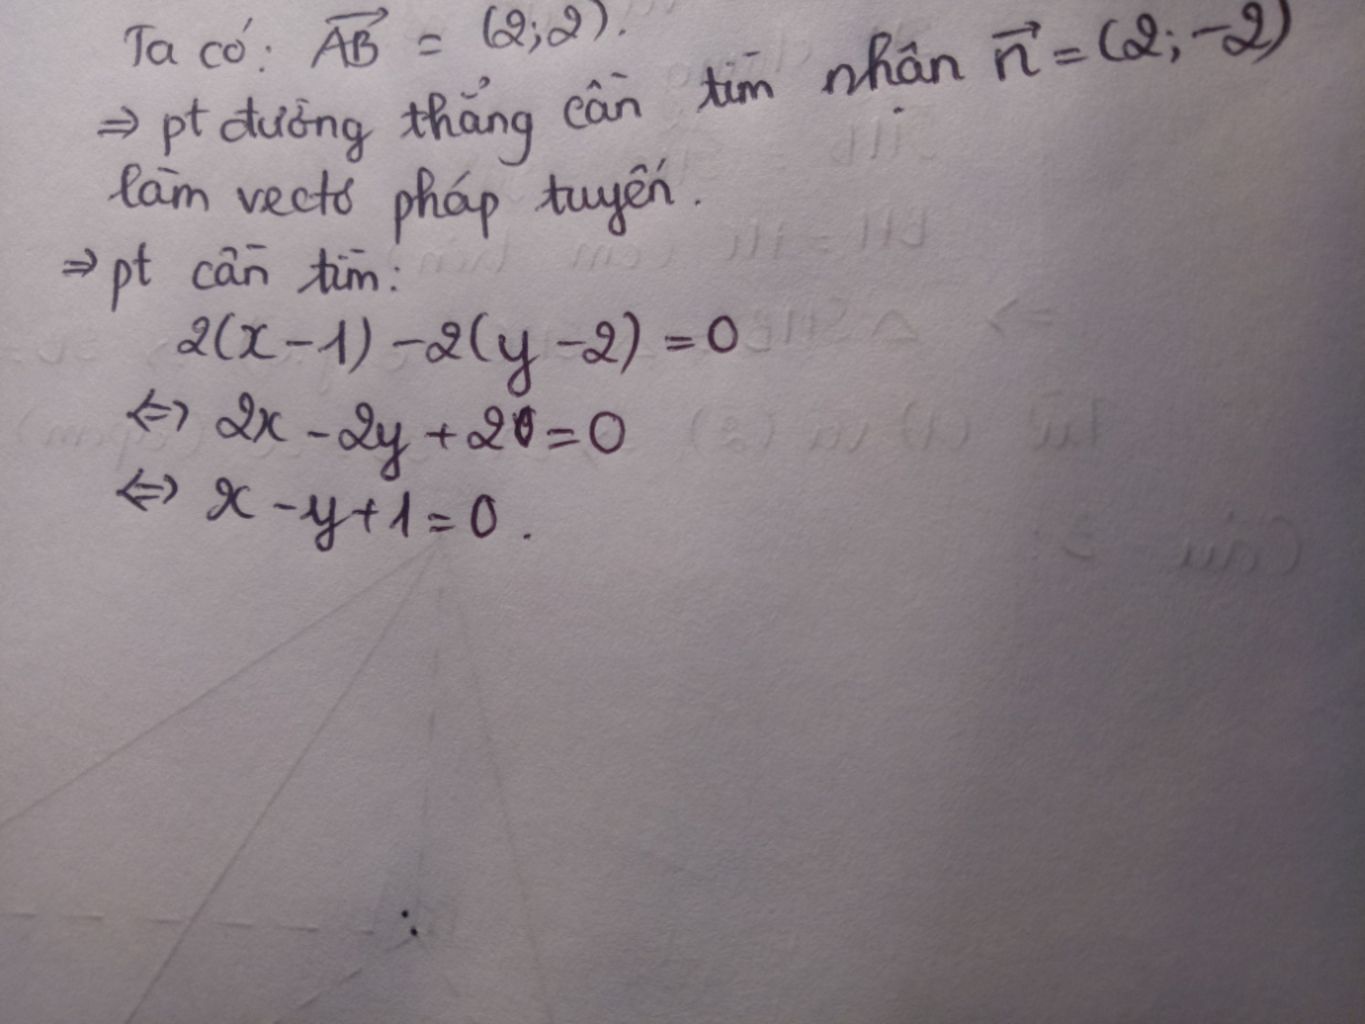 Ta có: $\overrightarrow{AB}$ = (2;2).
⇒ pt đường thẳng cần tìm nhận $\vec{n}$ = (2;-2)
làm vectơ pháp tuyến.
⇒ pt cần tìm:
2(x-1) -2(y-2) = 0
⇔ 2x - 2y + 2 = 0
⇔ x - y + 1 = 0.